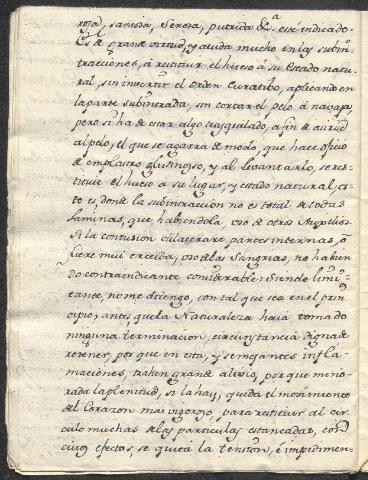 roja, saniosa, serosa, putrida &.ª esté indicado.
Es de grande virtud, y aiuda mucho en las subin-
tracciones, á restituir el hueso á su estado natu-
ral, sin invertir el orden Curatibo, aplicando en
la parte subintrada, sin cortar el pelo á navaja,
pero si ha de estar algo trasquilado, a fin de
al pelo, el que se agarra de modo, que hace oficio
de emplastro glutinoso, y al levantarlo, se res-
tituie el hueso á su lugar, y estado natural, es-
to es, donde la subintraccion no es total de todas
laminas, que habiendola, uso de otros Auxilios.
Si la contusion dilacerare partes internas, ó
fuere mui crecida, uso de las Sangrias, no habien
do contraindicante considerable: siendo limi-
tante, no me detengo, con tal que sea en el prin
cipio, antes que la Naturaleza haia tomado
ninguna terminacion, circunstancia digna de
retener, por que en esta, y semejantes infla-
maciones, trahen grande alivio, por que mino-
rada la plenitud, si la hay, queda el movimiento
del Corazon mas vigoroso, para restituir al cir
culo muchas de las particulas estancadas, con
cuios efectos, se quita la tension, é impedimen-